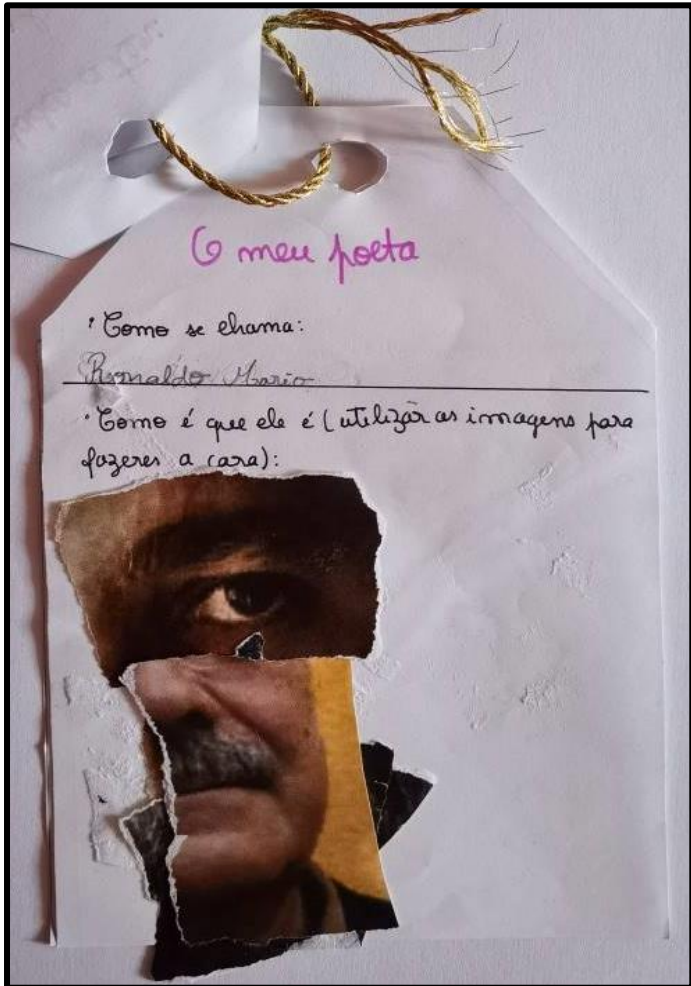 O meu poeta
· Como se chama:
Ronaldo Mario
· Como é que ele é (utilizar as imagens para
fazeres a cara):